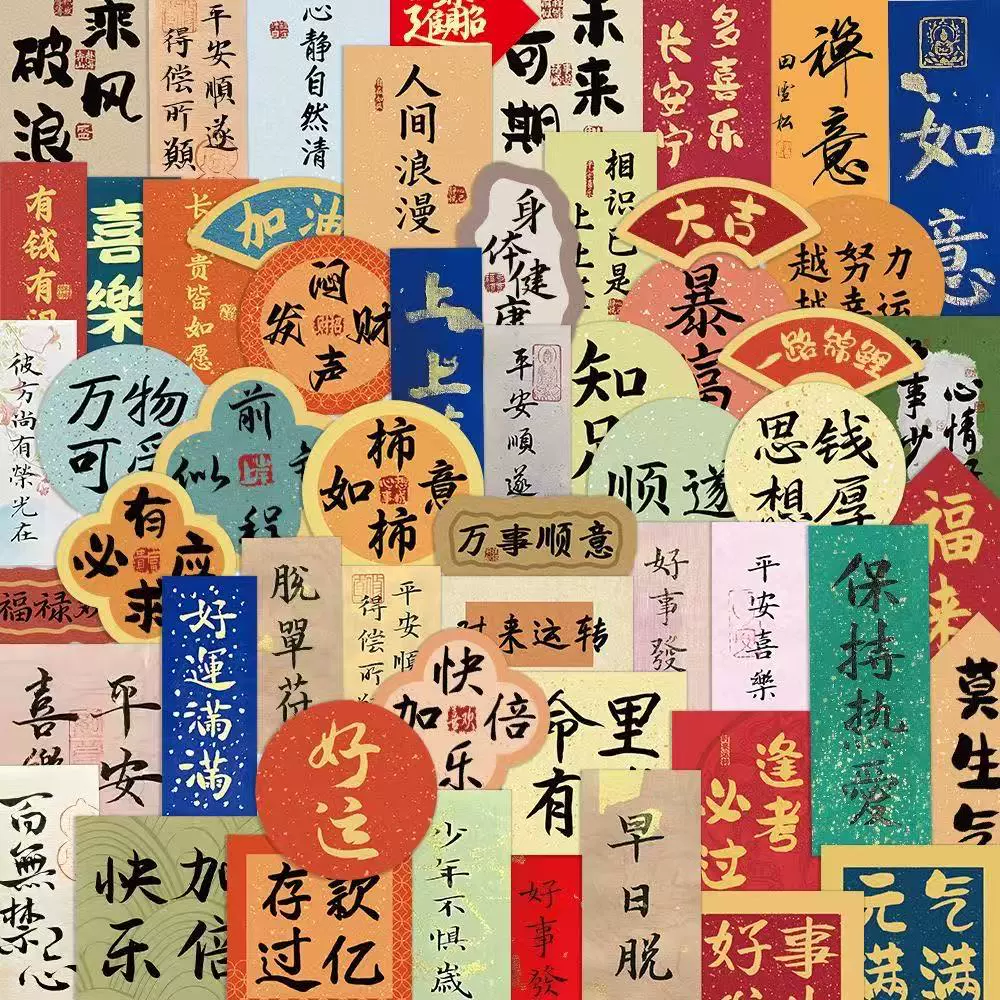 乘风
破浪
平安順遂
得偿所願
心静自然清
進
招
人间
浪漫
未来
可期
多喜乐
长安宁
禅意
田雪松
如
意
有钱有
喜樂
长
贵皆如愿
加油
身体健康
相识已是
上上
大吉
越努力
越幸运
暴富
闷声
发财
上上
平安順遂
知足
一路锦鲤
心情
事少
彼方尚有榮光在
万物
可爱
前程
似
柿柿
如意
顺遂
钱厚
思想
福
来
有求
必应
万事顺意
福禄
好運滿滿
脫單
平安順
得偿所
时来运转
好事發
平安喜樂
保持热愛
平安
喜樂
快乐
加倍
命里
有
莫生气
好运
逢考
必过
百無禁忌
加倍
快乐
存款
过亿
少年不惧歳
好事發
早日脫
好事
元气
满满